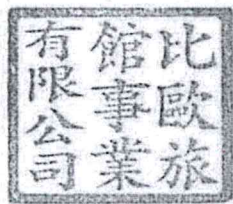 比歐旅
館事業
有限公司